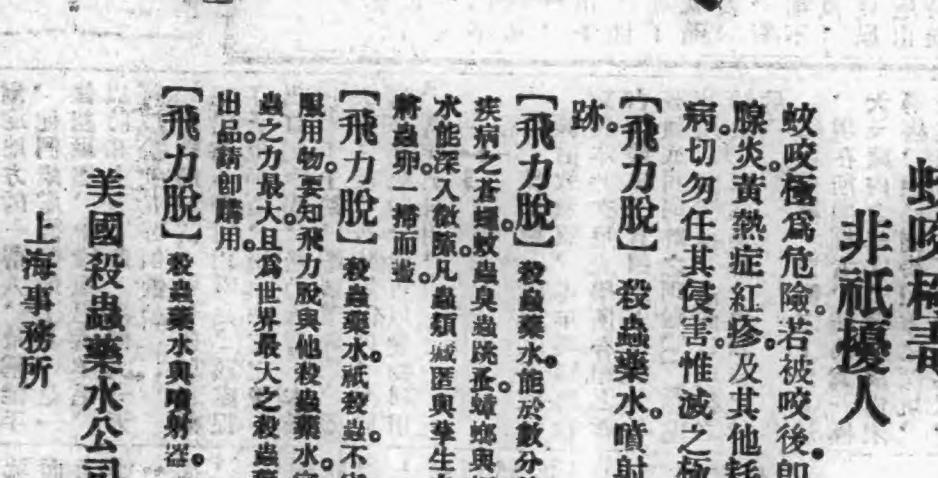 蚊咬極毒
非祇擾人
蚊咬極爲危險。若被咬後。即
腺炎。黃熱症紅疹。及其他
病。切勿任其侵害。惟滅之極
【飛力脫】殺蟲藥水。噴射
跡。
【飛力脫】殺蟲藥水。能於數分
疾病之蒼蠅。蚊蟲臭蟲跳蚤。蟑螂與
水能深入微隙。凡蟲類藏匿與孳生
將蟲卵一掃而盡。
【飛力脫】殺蟲藥水。祇殺蟲。不
服用物。要知飛力脫與他殺蟲藥水。
蟲之力最大。且爲世界最大之殺蟲藥
出品。請卽購用。
【飛力脫】殺蟲藥水與噴射器。
美國殺蟲藥水公司
上海事務所